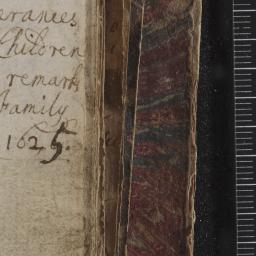 erances
Children
remark
Family
1625.